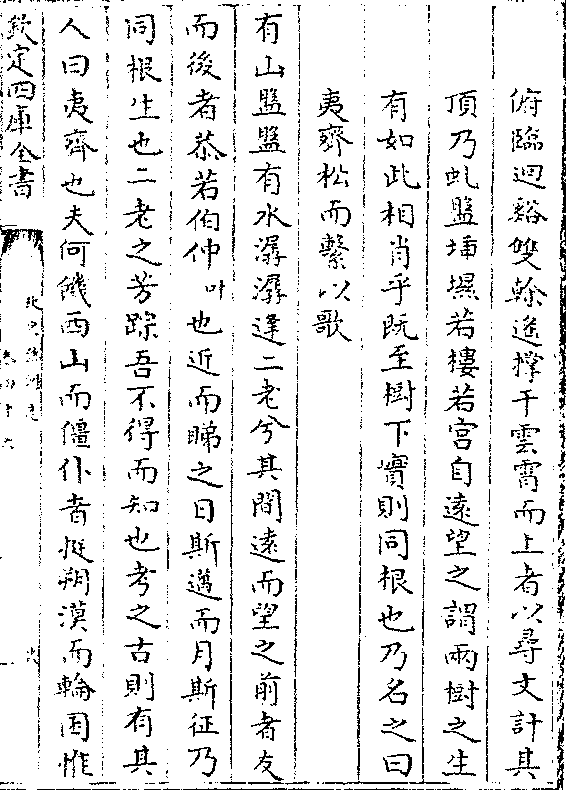 俯臨迴谿雙榦遙撑干雲霄而上者以尋丈計其
頂乃虬盤埵㙷若樓若宫自遠望之謂兩樹之生
有如此相肖乎既至樹下實則同根也乃名之曰
夷齊松而繫以歌
有山盤盤有水潺潺逢二老兮其間遠而望之前者友
而後者恭若伯仲叶也近而睇之日斯邁而月斯征乃
同根生也二老之芳踪吾不得而知也考之古則有其
人曰夷齊也夫何餓西山而僵仆者挺朔漠而輪囷惟
欽定四庫全書